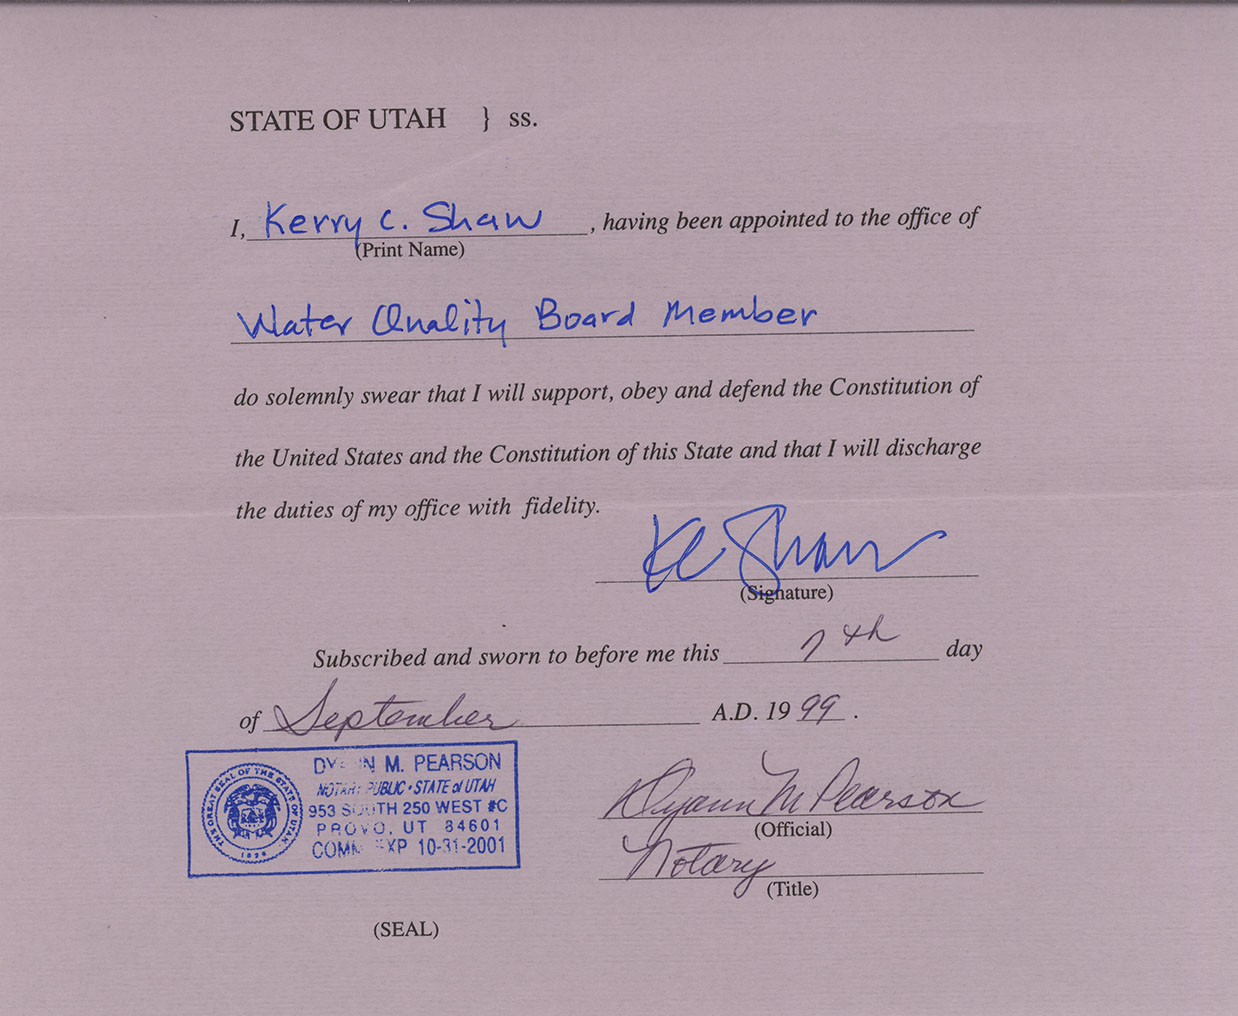 STATE OF UTAH } ss.
I, Kerry C. Shaw , having been appointed to the office of
(Print Name)
Water Quality Board Member
do solemnly swear that I will support, obey and defend the Constitution of
the United States and the Constitution of this State and that I will discharge
the duties of my office with fidelity.
KC Shaw
(Signature)
Subscribed and sworn to before me this 7th day
of September A.D. 1999 .
THE GREAT SEAL OF THE STATE OF UTAH
1896
M. PEARSON
NOTARY PUBLIC • STATE of UTAH
953 SOUTH 250 WEST #C
PROVO, UT 84601
COMM. EXP 10-31-2001
Dyann M Pearson
(Official)
Notary
(Title)
(SEAL)